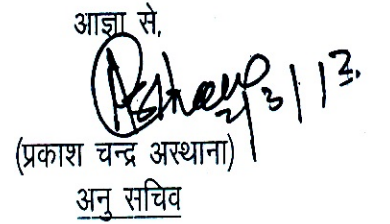 आज्ञा से,
2/3/13.
(प्रकाश चन्द्र अस्थाना)
अनु सचिव